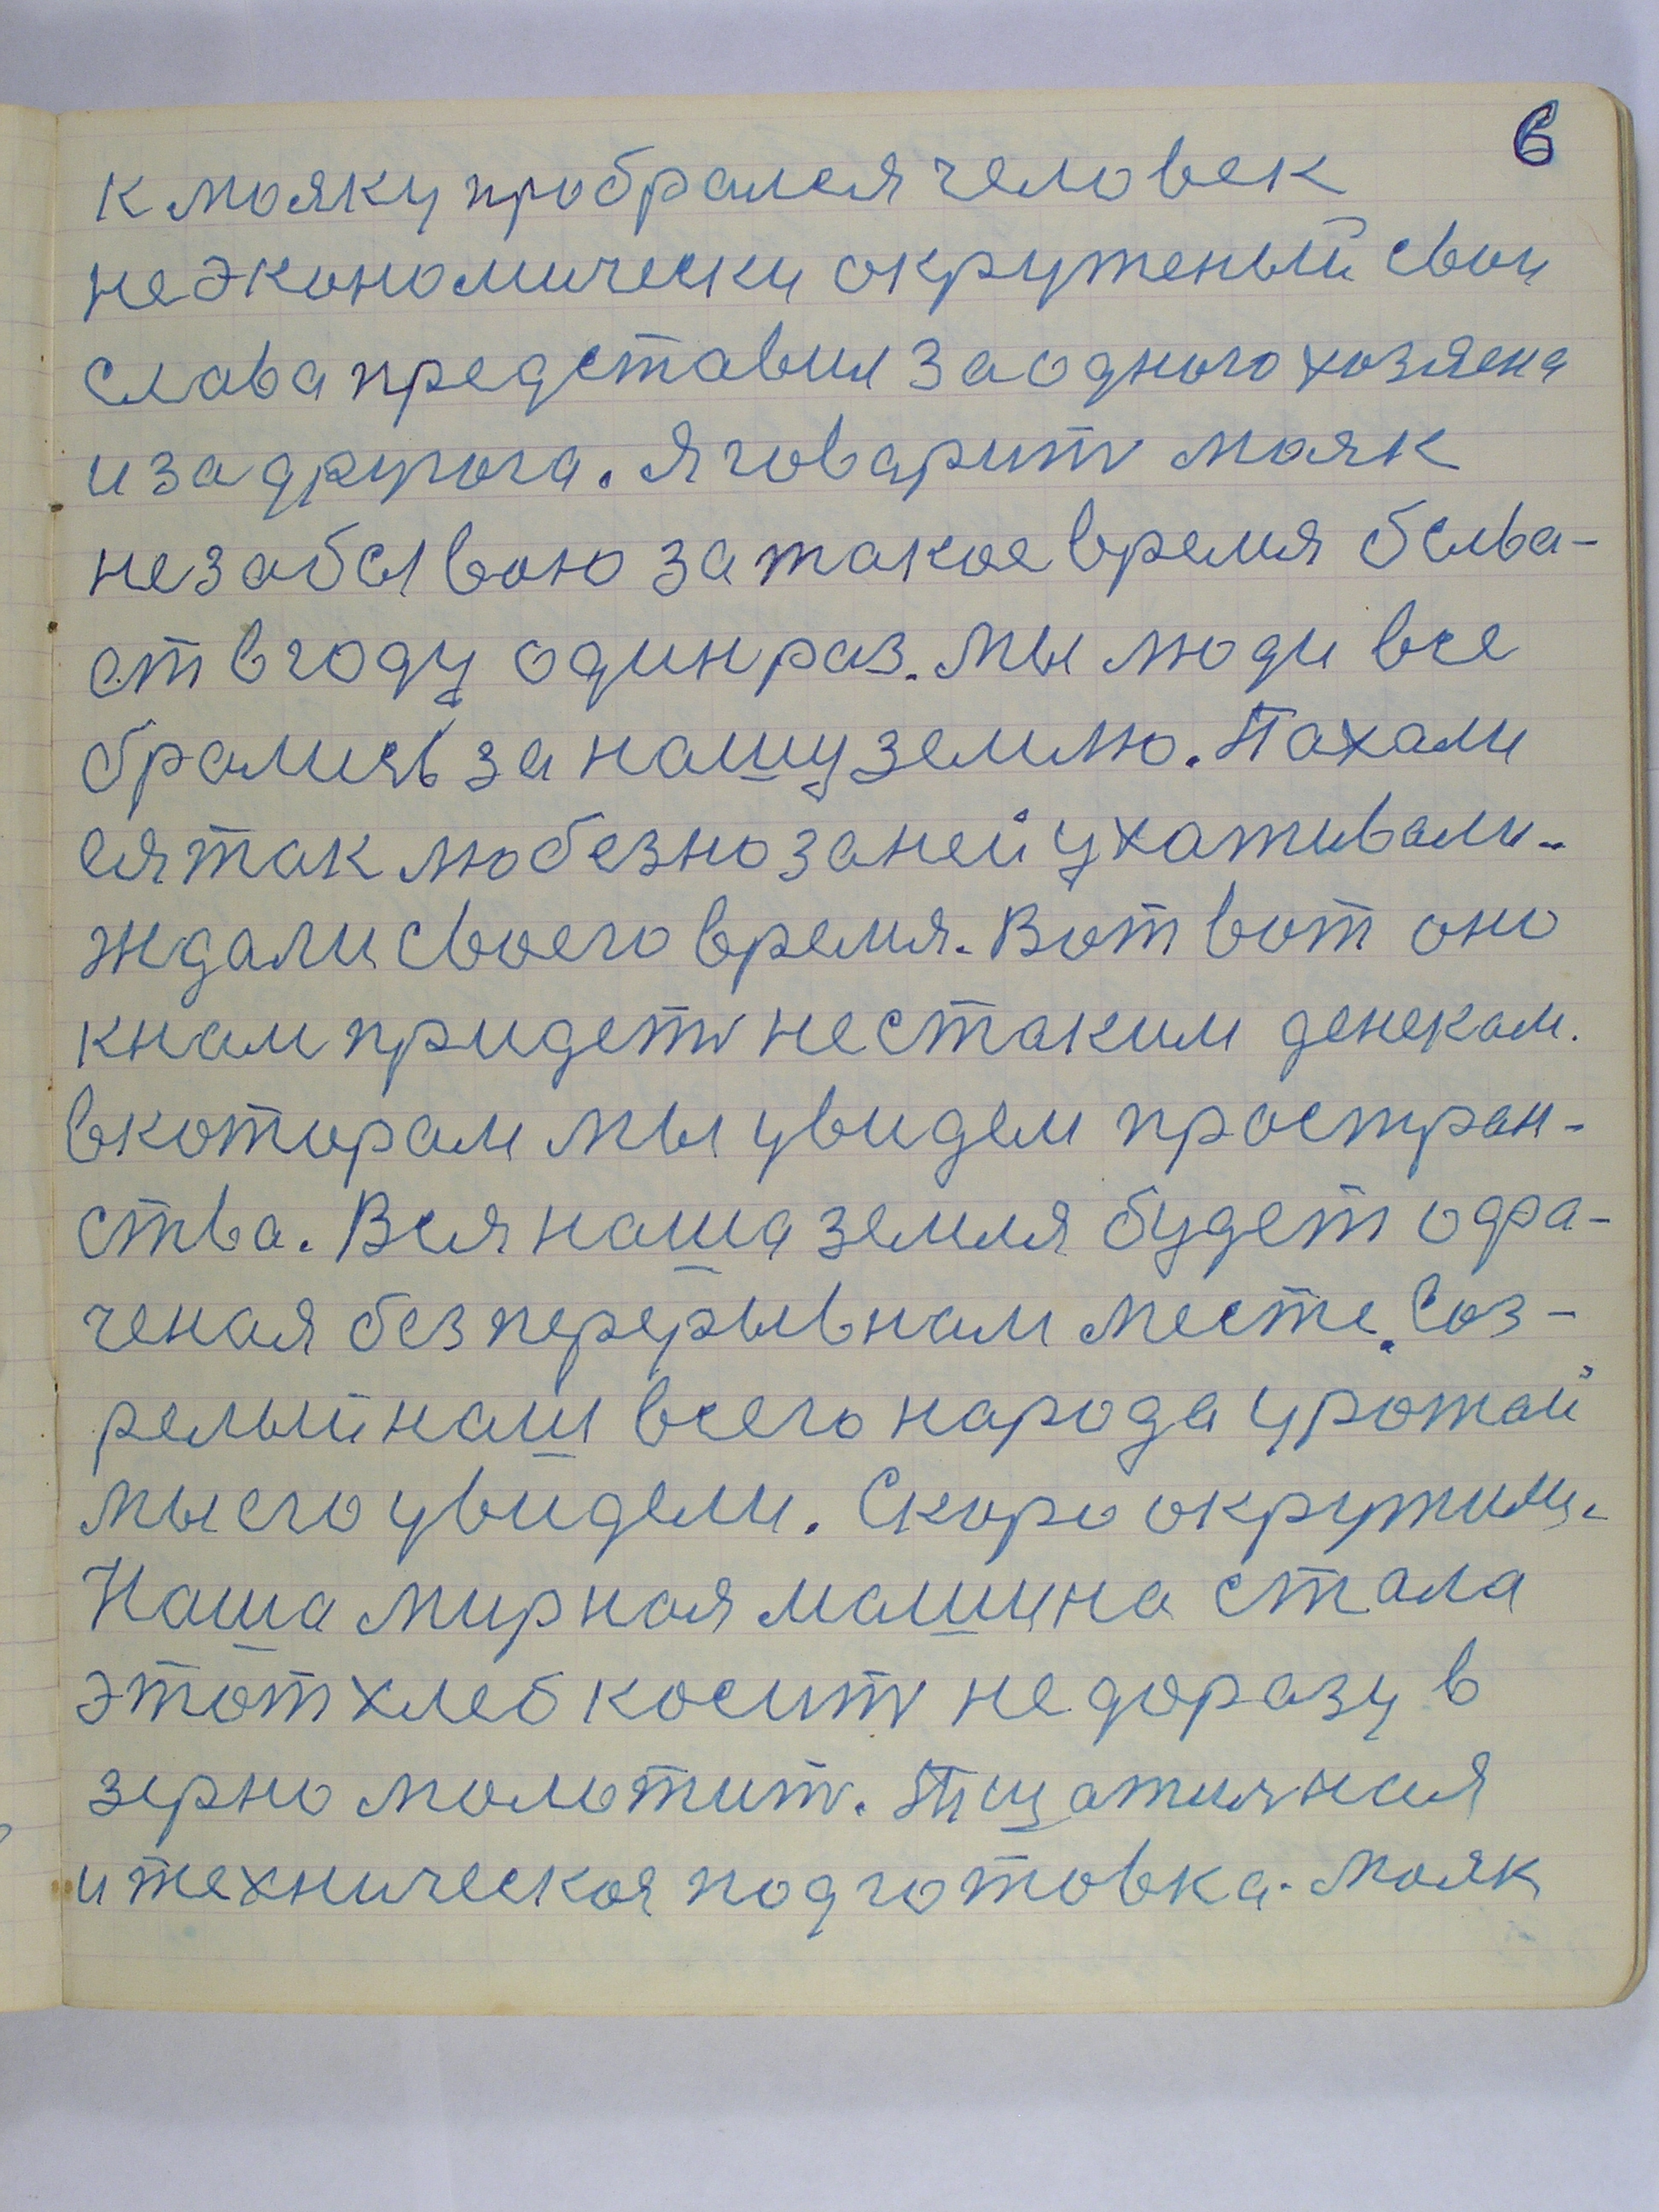 6
к мояку пробрался человек
не экономически окруженый свои
слова представил за одного хозяена
и за другога. Я говарит мояк
не забываю за такое время быва-
ет в году один раз. Мы люди все
брались за нашу землю. Пахали
ея так любезно за ней ухаживали.
ждали своего время. Вот вот оно
к нам придет не с таким денекам.
в котором мы увидем простран-
ства. Вся наша земля будет одна-
ченая без перерывнам месте. Соз-
релый наш всего народа урожай
мы его увидели. Скоро окружили.
Наша мирная машина стала
этот хлеб косит не доразу в
зерно молотит. Тщатияная
и техническая подготовка. Мояк